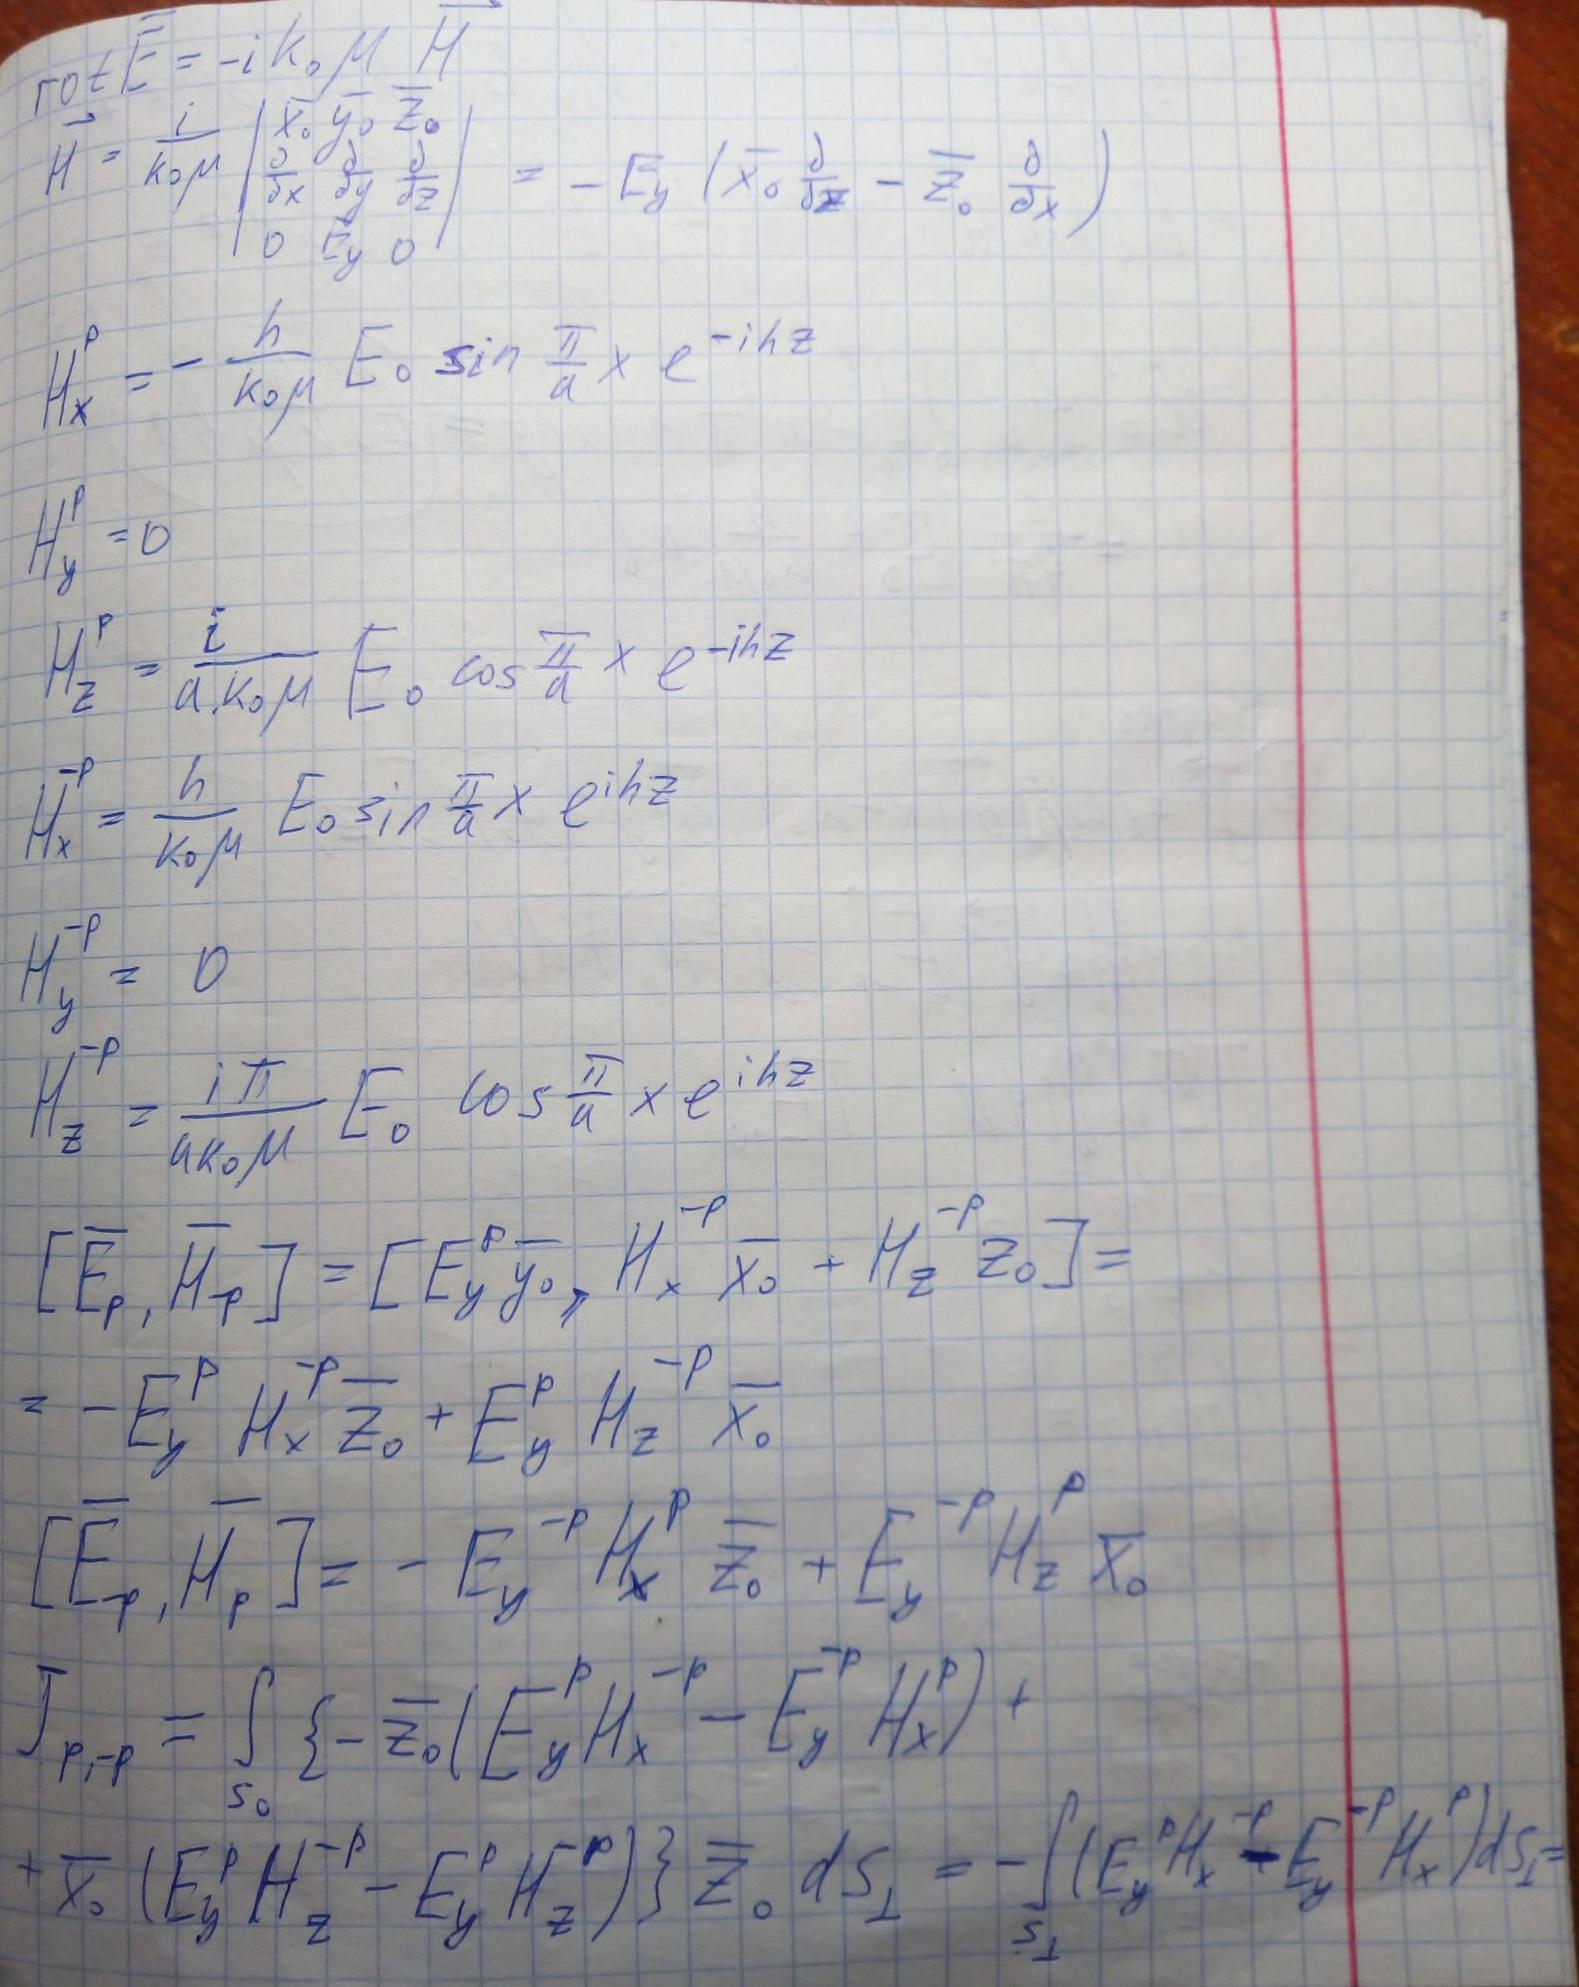 rot E̅ = -i k₀ μ H⃗
H⃗ = i/(k₀μ) | x̅₀ y̅₀ z̅₀ ; ∂/∂x ∂/∂y ∂/∂z ; 0 E_y 0 | = - E_y ( x̅₀ ∂/∂z - z̅₀ ∂/∂x )
H_x^p = - h/(k₀μ) E₀ sin π/a x e^{-ihz}
H_y^p = 0
H_z^p = i/(a k₀μ) E₀ cos π/a x e^{-ihz}
H_x^{-p} = h/(k₀μ) E₀ sin π/a x e^{ihz}
H_y^{-p} = 0
H_z^{-p} = iπ/(a k₀ μ) E₀ cos π/a x e^{ihz}
[E̅_p, H̅_{-p}] = [E_y^p y̅₀, H_x^{-p} x̅₀ + H_z^{-p} z₀] =
= - E_y^p H_x^{-p} z̅₀ + E_y^p H_z^{-p} x̅₀
[E̅_{-p}, H̅_p] = - E_y^{-p} H_x^p z̅₀ + E_y^{-p} H_z^p x̅₀
J_{p,-p} = ∫_{S₀} { - z̅₀ ( E_y^p H_x^{-p} - E_y^{-p} H_x^p ) +
+ x̅₀ ( E_y^p H_z^{-p} - E_y^p H_z^{-p} ) } z̅₀ dS_⊥ = - ∫_{S_⊥} ( E_y^p H_x^{-p} - E_y^{-p} H_x^p ) dS_⊥ =